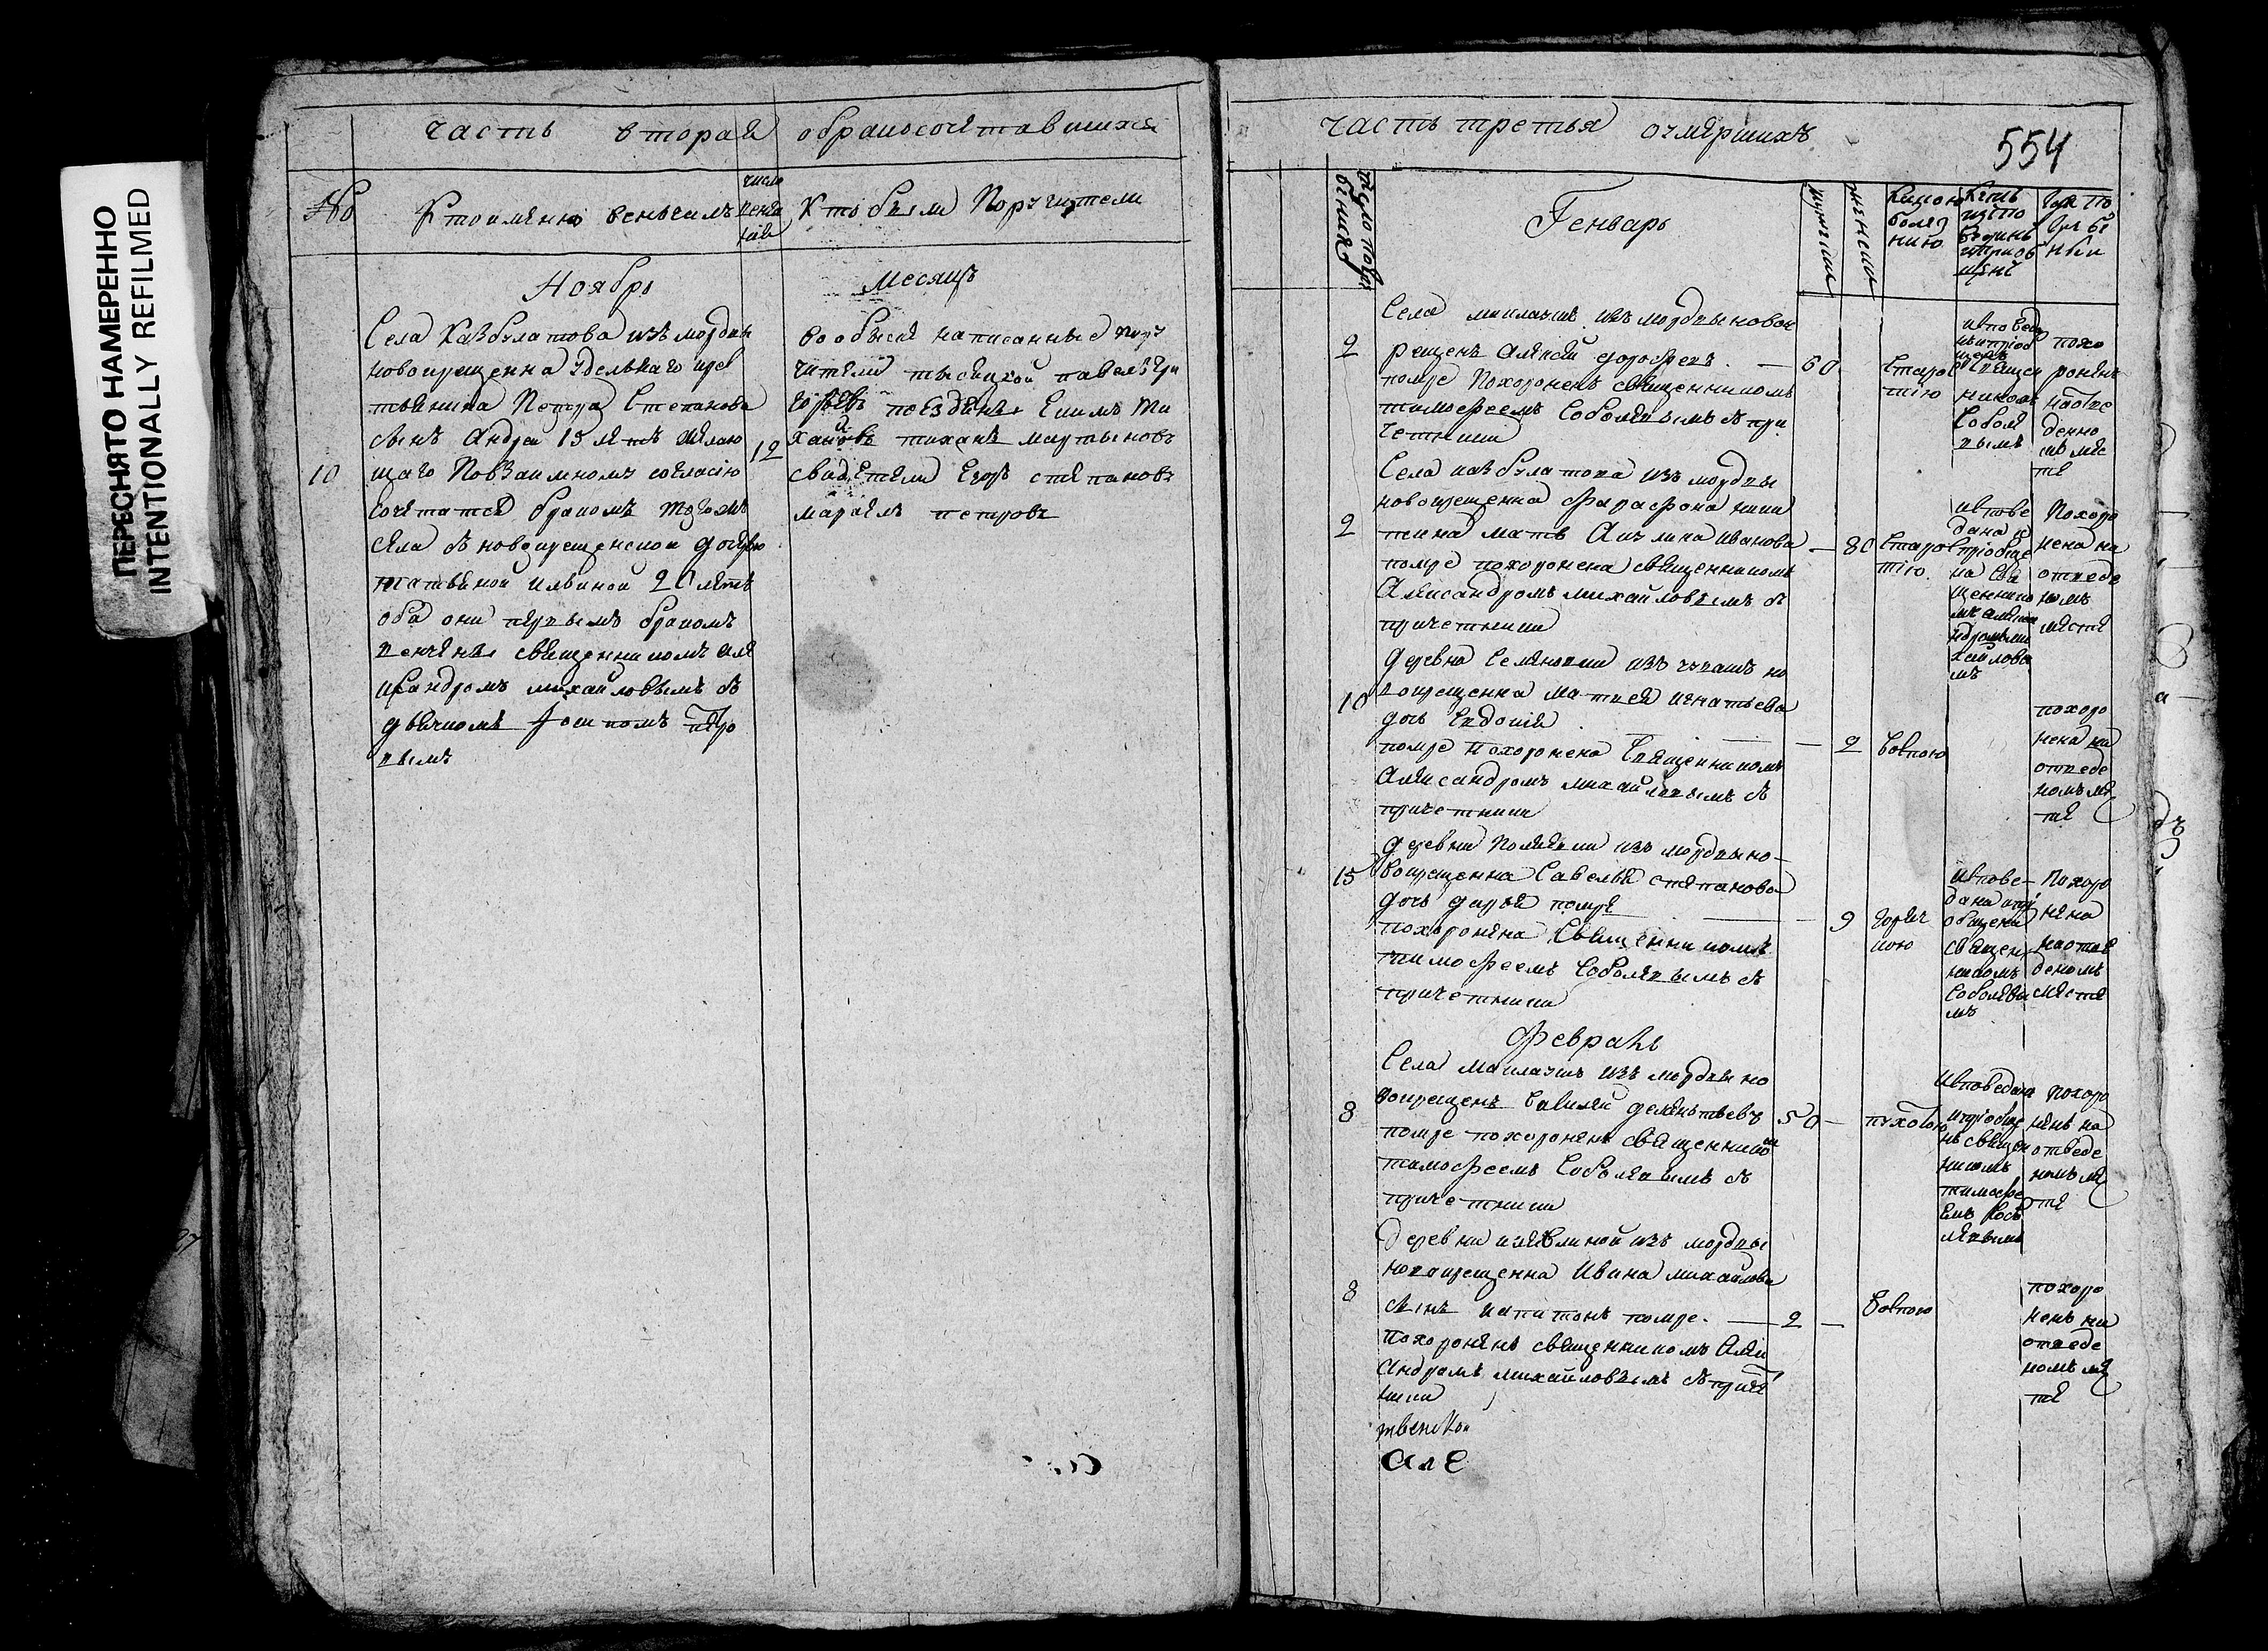 ПЕРЕСНЯТО НАМЕРЕННО
INTENTIONALLY REFILMED
часть вторая обракосочятавшихся
No
Кто имянно венчанъ
число венча ния
Кто были Поручители
Ноябрь месяцъ
Села Казбулатова изъ мордвы
новокрещенна удельнаго крес
тьянина Петра Степанова
сынъ Андрей 15 летъ желаю
щаго Повзаимному согласию
10
Сочятатся бракомъ тогожъ
села с новокрещенской дочярю
татьяной ильиной 20 летъ
оба они первымъ бракомъ
венчяны священникомъ Але
ксандромъ михайловымъ съ
дьячкомъ
12
вообыскя написанныя пору
чители тысяцкой павелъ Гри
горьевъ поезжаня Екимъ Ми
хайловъ тиханъ мартыновъ
свидетели Егоръ стяпановъ
петровъ
часть третья оумяршихъ
554
число погре бения
Генварь
мужеска
женска
Какою болез нию
Кемъ испо веданъ иприоб щенъ
Где по гребе ны
Села маклаушъ изъ мордвы новок
2
рещенъ Алексей дорофеевъ — 60
помре Похороненъ священникомъ
тимофеемъ Соболевымъ съ при
четники
Старос тию
исповеданъ иприоб щенъ Священ никомъ Соболе вымъ
похо роненъ наотве денно мъ мес те
Села казбулатова изъ мордвы
новокрещенна фарафона ники
2
тина мать Акулина иванова — 80
помре похоронена священникомъ
Александромъ михайловымъ съ
причетники
Старос тию
испове дана и приобще на Свя щеннико мъ алекса ндромъ ми хайловы мъ
Похоро нена на отведе номъ месте
деревна Семянкина изъ чувашъ но
вокрещенна Матвея игнатьева
10
дочь Евдокия
помре похоронена Священникомъ — 2
Александромъ михайловымъ съ
причетники
Воспою
похоро нена на отведе номъ мес те
деревни Полявки изъ мордвы но-
15
вокрещенна Савелья стяпанова
дочь дарья помре — 9
похороняна Священникомъ
тимофеемъ Соболявымъ съ
причетники
горяч кою
испове- дана при общена священ никомъ Соболявы мъ
Похоро няна наотве деномъ месте
Февраль
Села маклаушъ изъ мордвы но
вокрещенъ Савилей демянтьевъ 50 —
8
помре похоронянъ священникомъ
тимофеемъ Соболявымъ съ
причетники
пухотою
Исповеданъ иприобще нъ священ никомъ тимофе емъ Собо лявымъ
Похоро нянъ на отведе номъ мес те
деревни изъ мордвы
новокрещенна Ивана михайлова
8
сынъ капитонъ помре. — 2 —
Похоронянъ священникомъ Алек
сандромъ михайловымъ съ приче
ники
Воспою
похоро ненъ на отведе номъ мес те
твенской
Але